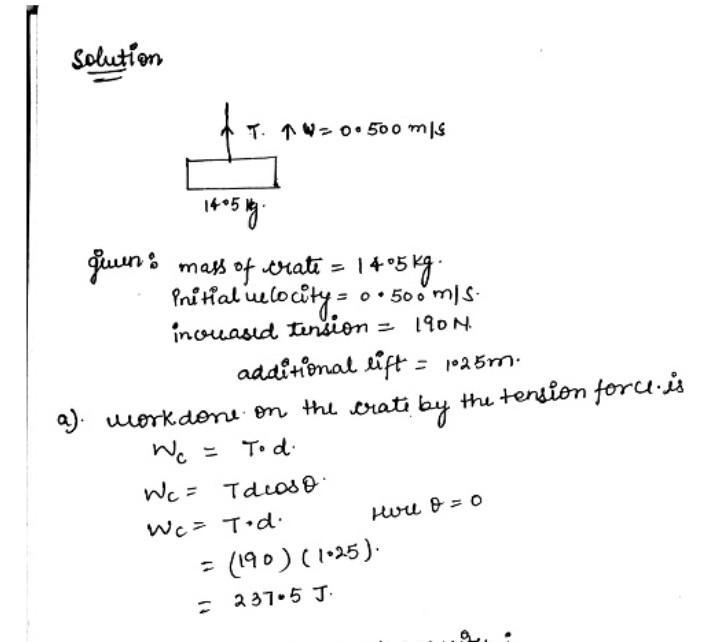 Solution
T. ↑ V = 0.500 m/s
14.5 kg.
given: mass of crate = 14.5 kg.
Initial velocity = 0.500 m/s.
increased tension = 190 N.
additional lift = 1.25m.
a). work done on the crate by the tension force is
Wc = T.d.
Wc = Tdcosθ.
Wc = T.d. Here θ = 0
= (190) (1.25).
= 237.5 J.